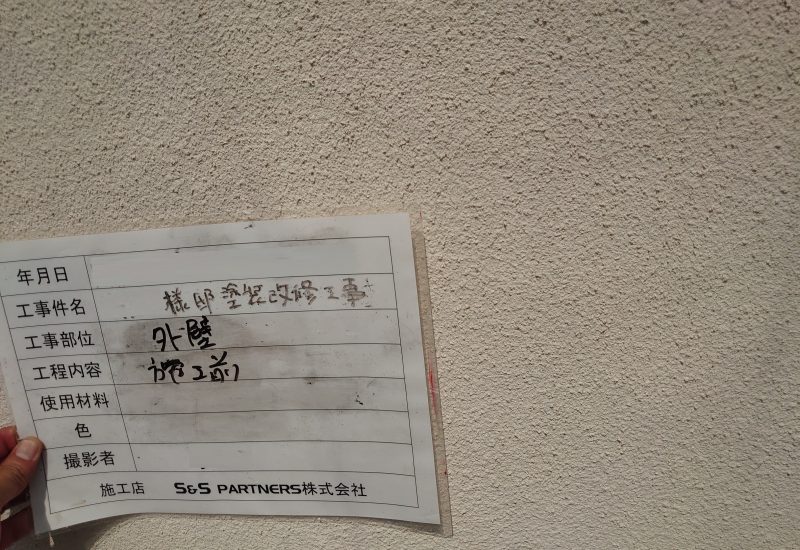 年月日
工事件名 様邸塗装改修工事
工事部位 外壁
工程内容 施工前
使用材料
色
撮影者
施工店 S&S PARTNERS株式会社